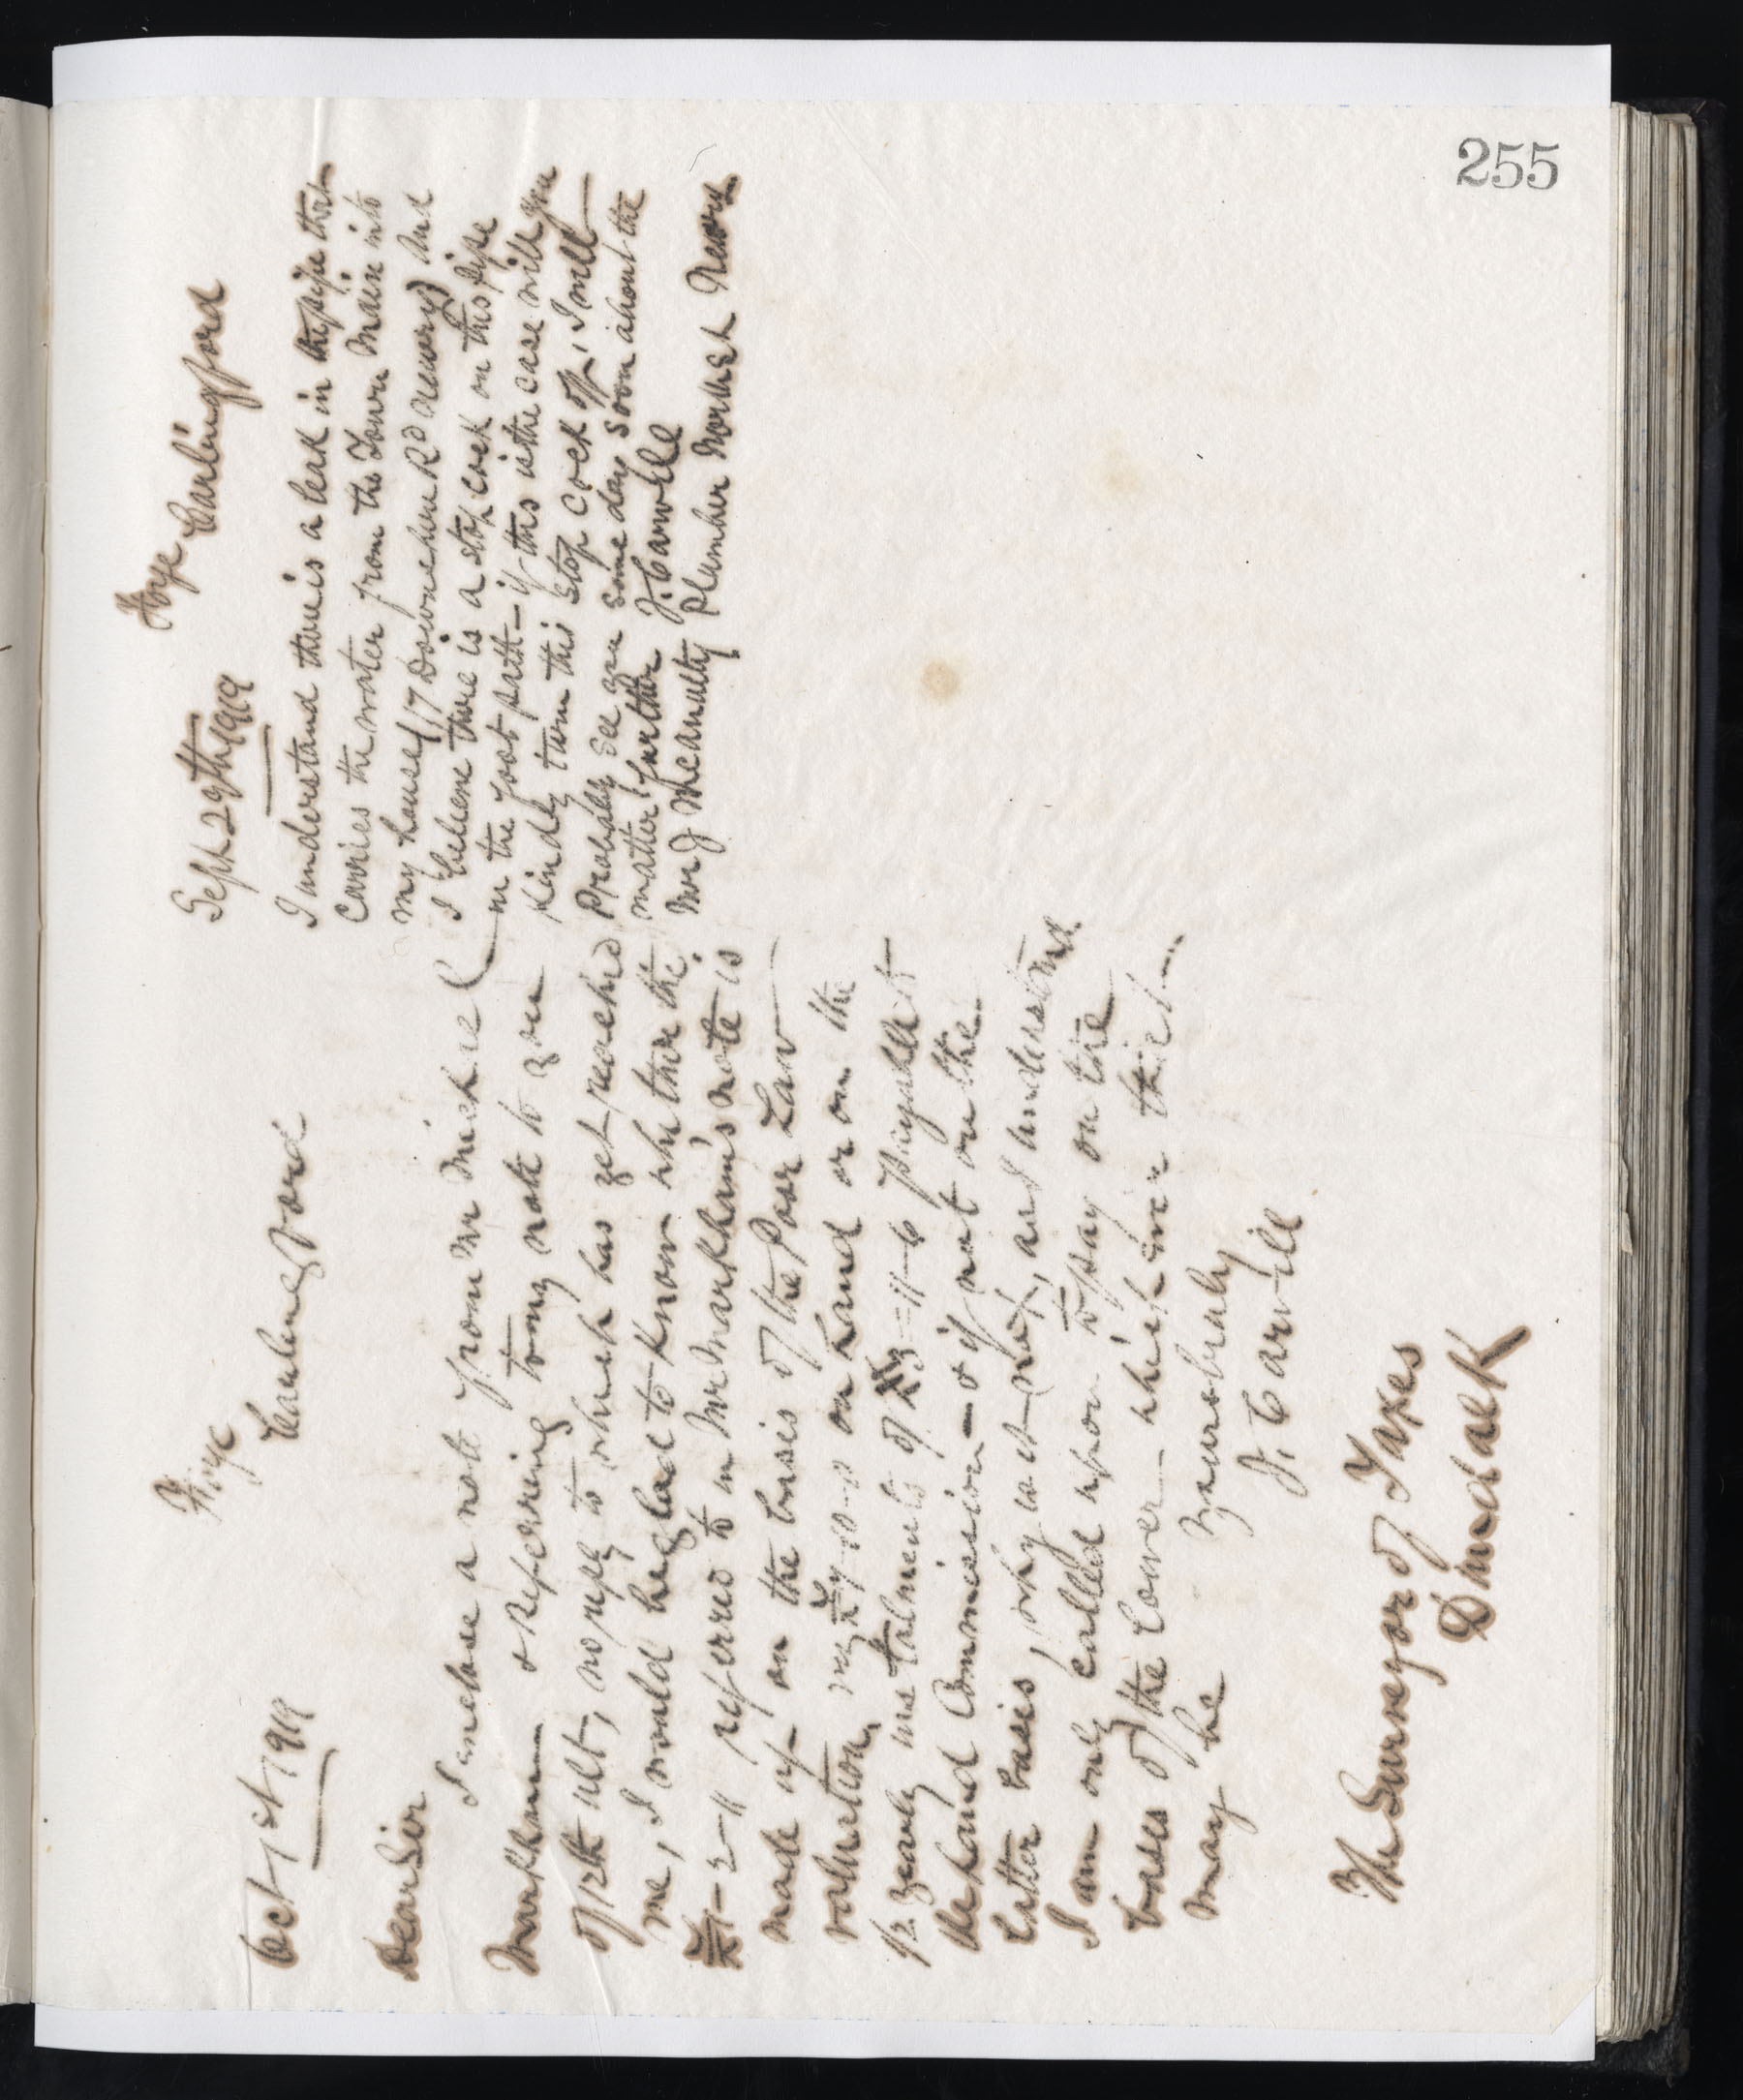 255
Oct 1st 1919
Ffrye
Carlingford
Dear Sir
I enclose a note from Mr Michael
Markham & referring to my note to you
of 12th ult, no reply to which has yet reached
me, I would be glad to know whether the
£1-2-11 referred to in Mr Markham's note is
made up on the basis of the Poor Law
valuation, on hand or on the
1/2 yearly instalments of £3=11-6 payable to
the Land Commission - & if not on the
latter basis, why is it not, as I understand
I am only called upon to pay on the
bases of the lower - whichever that
may be
Yours truly
J. Carvill
The Surveyor of Taxes
Dundalk
Sept 29th 1919
Ffrye Carlingford
I understand there is a leak in the pipe that
carries the water from the Town Main into
my house (17 Downshire Rd Newry) and
I believe there is a stop cock on this pipe
in the foot path - if this is the case will you
kindly turn this stop cock off, I will
Probably see you some day soon about the
matter further J. Carvill
Mr J McAnulty Plumber Market Newry